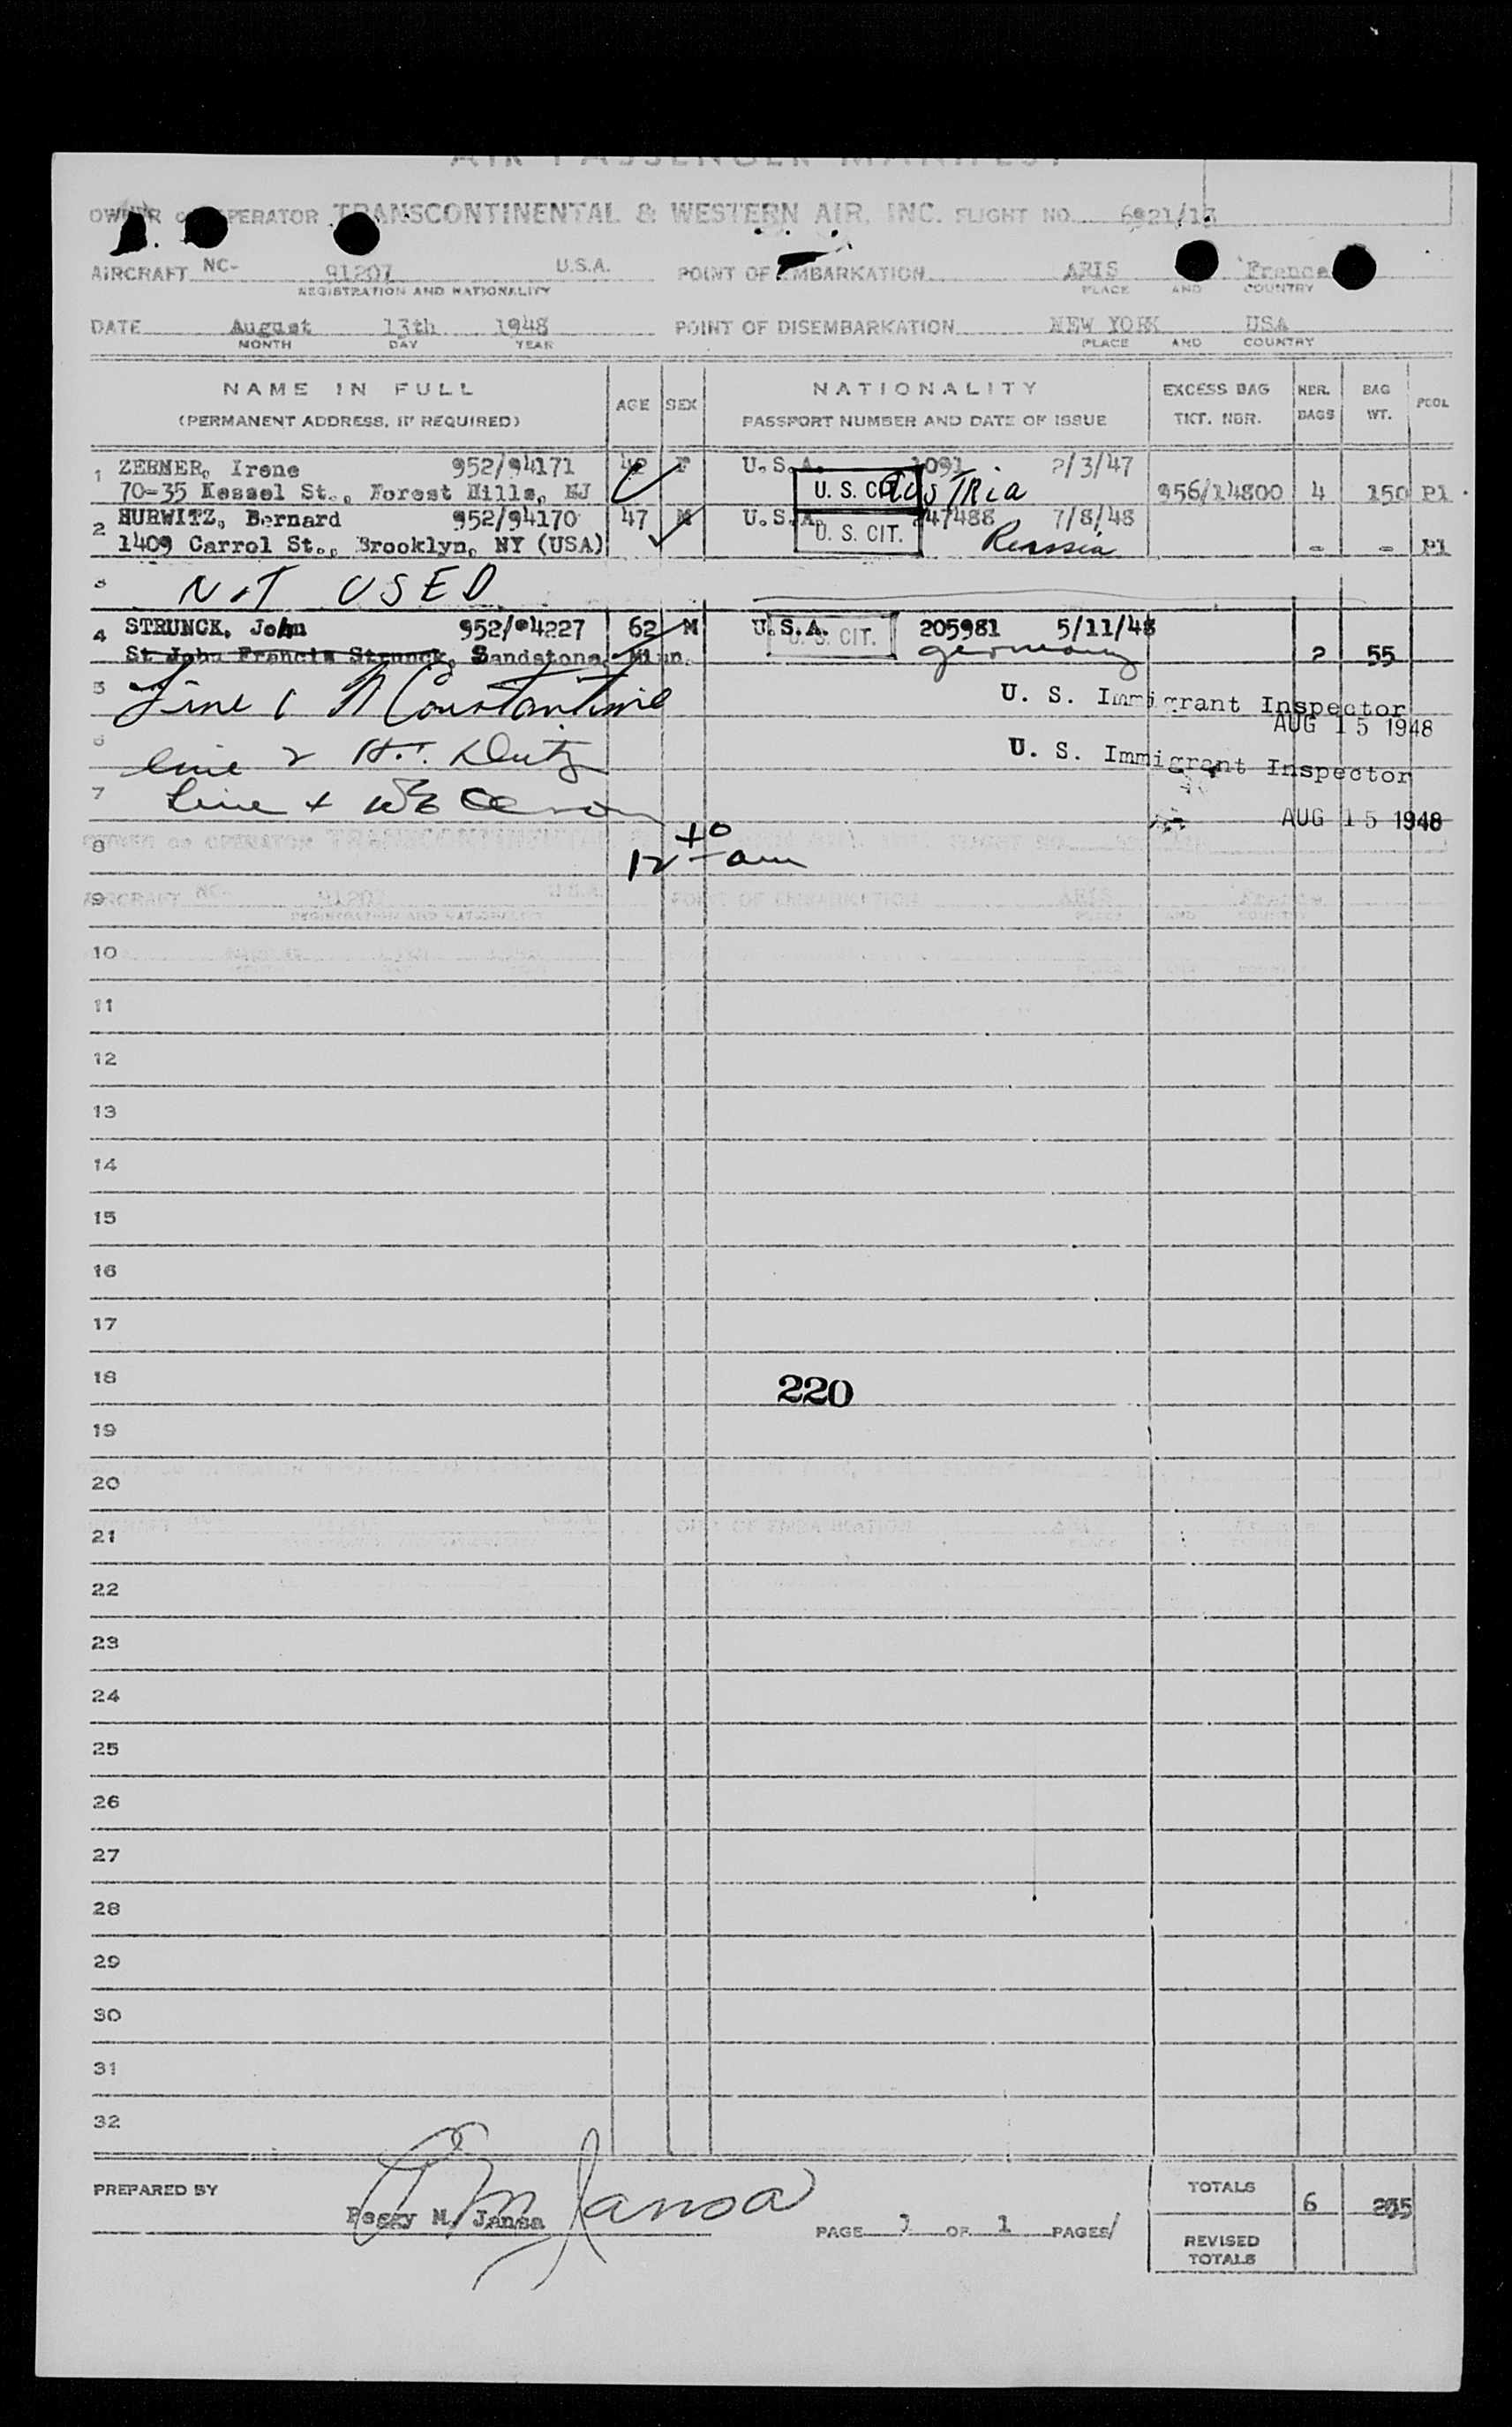 AIR PASSENGER MANIFEST
OWNER or OPERATOR TRANSCONTINENTAL & WESTERN AIR, INC. FLIGHT NO. 6921/13
AIRCRAFT NC- 91207 U.S.A. POINT OF EMBARKATION ARIS France
REGISTRATION AND NATIONALITY PLACE AND COUNTRY
DATE August 13th 1948 POINT OF DISEMBARKATION NEW YORK USA
MONTH DAY YEAR PLACE AND COUNTRY
NAME IN FULL AGE SEX NATIONALITY EXCESS BAG NBR. BAG POOL
(PERMANENT ADDRESS, IF REQUIRED) PASSPORT NUMBER AND DATE OF ISSUE TKT. NBR. BAGS WT.
1 ZERNER, Irene 952/94171 42 F U.S.A. 1091 2/3/47
70-35 Kessel St., Forest Hills, NJ U. S. CIT. AusTRia 956/14800 4 150 P1
2 HURWITZ, Bernard 952/94170 47 M U.S.A. 47488 7/8/48
1409 Carrol St., Brooklyn, NY (USA) U. S. CIT. Russia - - P1
3 NOT USED
4 STRUNCK, John 952/94227 62 M U.S.A. U. S. CIT. 205981 5/11/48
St John Francis Strunck, Sandstone, Minn. Germany 2 55
5 Line 1 N Constantine U. S. Immigrant Inspector
AUG 15 1948
6 line 2 H.T. Deitz U. S. Immigrant Inspector
7 Line 4
AUG 15 1948
8 12 40 am
9
10
11
12
13
14
15
16
17
18 220
19
20
21
22
23
24
25
26
27
28
29
30
31
32
PREPARED BY Peggy M. Jansa TOTALS 6 205
PAGE 1 OF 1 PAGES
REVISED
TOTALS